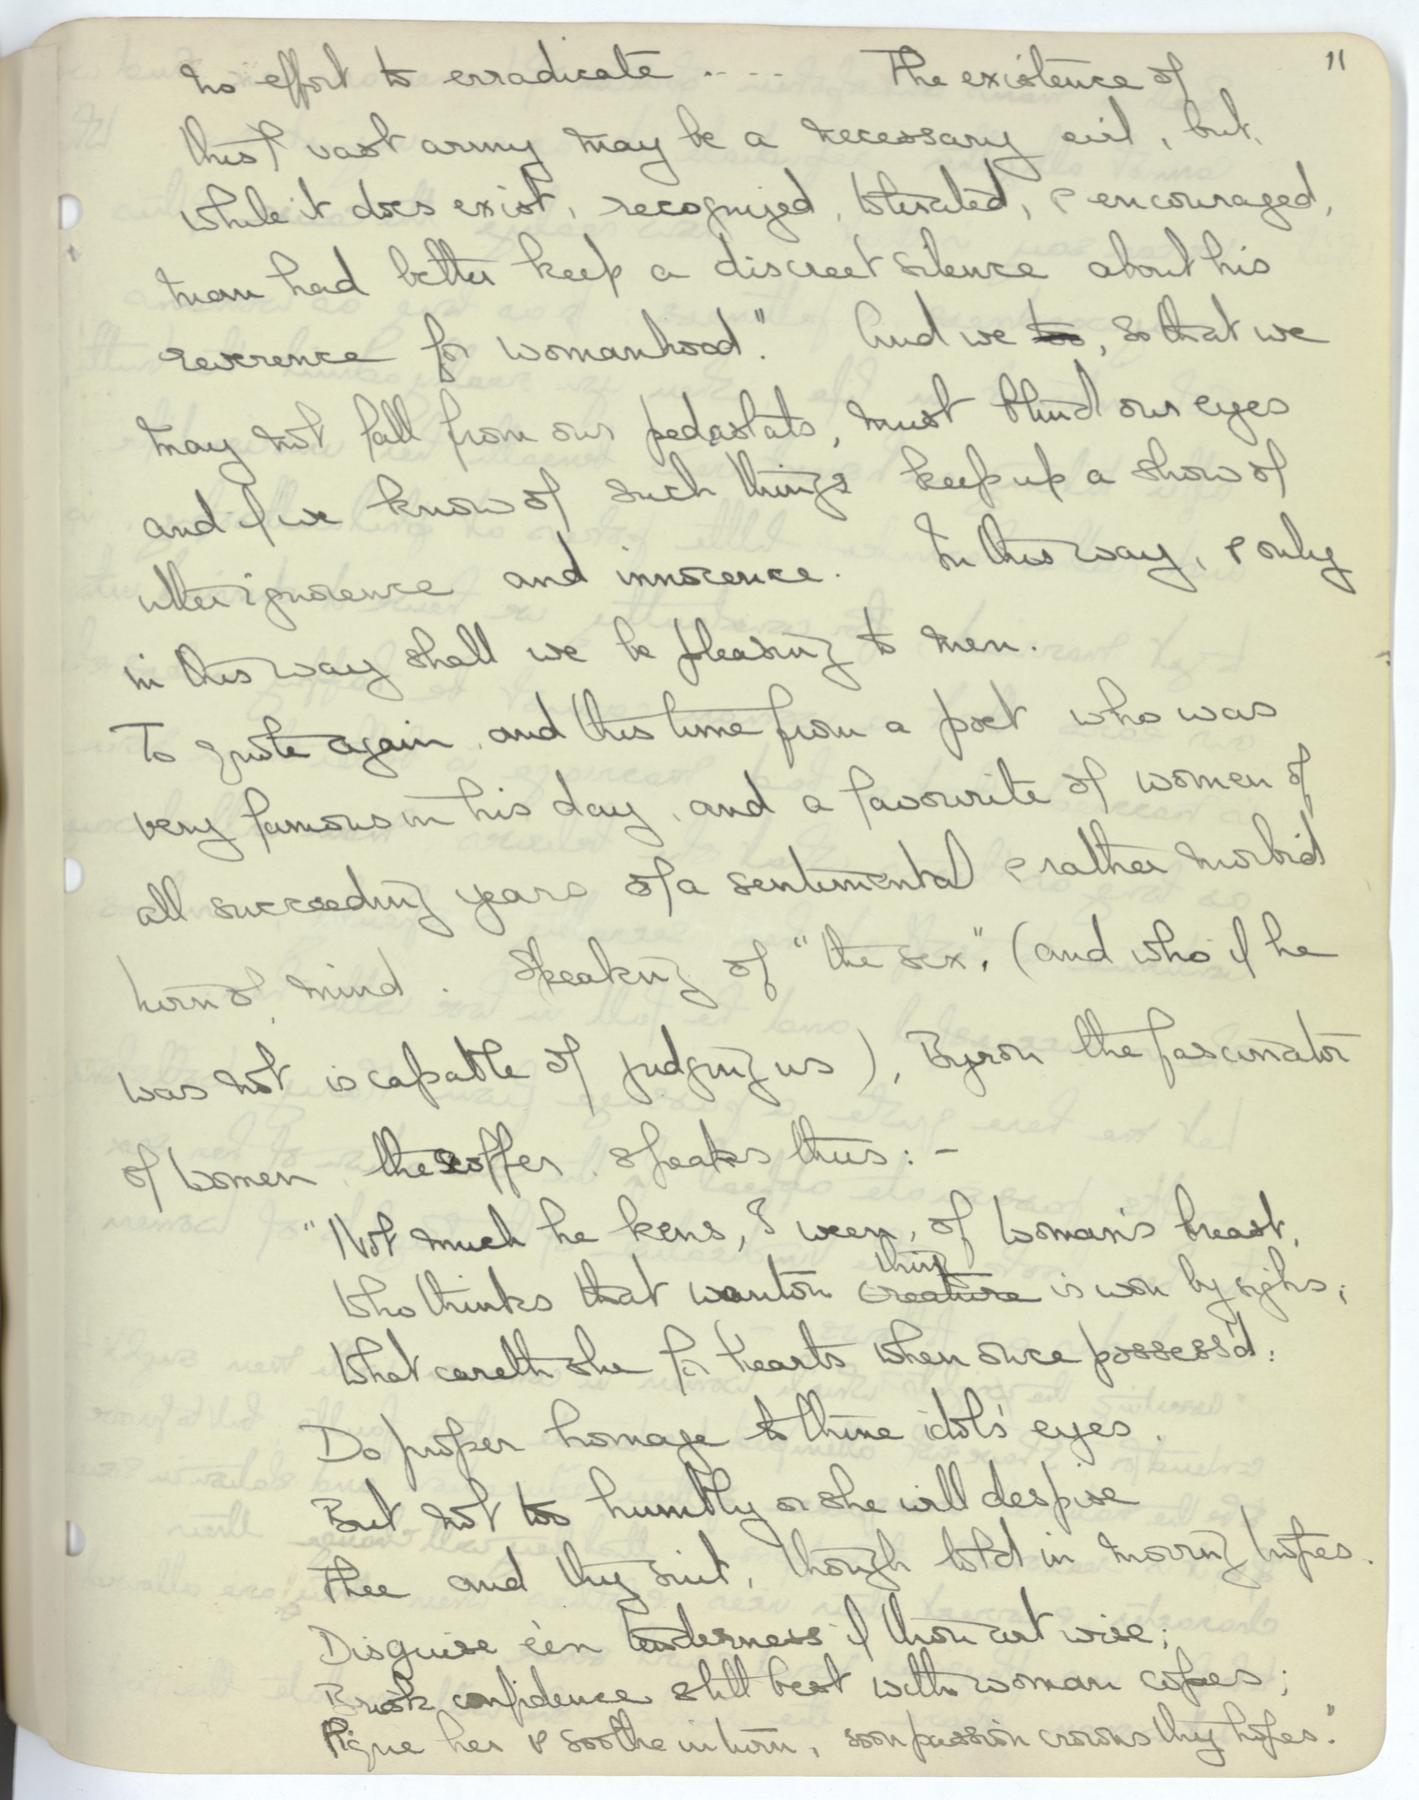 11
no effort to erradicate .... The existence of
this vast army may be a necessary evil, but,
while it does exist, recognized, tolerated, & encouraged,
man had better keep a discreet silence about his
reverence for womanhood." And we too, so that we
may not fall from our pedastals, must blind our eyes
and if we know of such things keep up a show of
utter ignorence and innocence. In this way, & only
in this way shall we be pleasing to men.
To quote again, and this time from a poet who was
very famous in his day, and a favourite of women of
all succeeding years of a sentimental & rather morbid
turn of mind. Speaking of "the sex", (and who if he
was not is capable of judging us), Byron the fascinator
of women, the scoffer, speaks thus: -
"Not much he kens, I ween, of Woman's breast,
thing
Who thinks that wanton creature is won by sighs;
What careth she for hearts when once possess'd:
Do proper homage to thine idol's eyes.
But not too humbly or she will despise
Thee and thy suit, though told in moving tropes.
Disguise e'en tenderness if thou art wise;
Brisk confidence still best with woman copes;
Pique her & soothe in turn, soon passion crowns thy hopes."